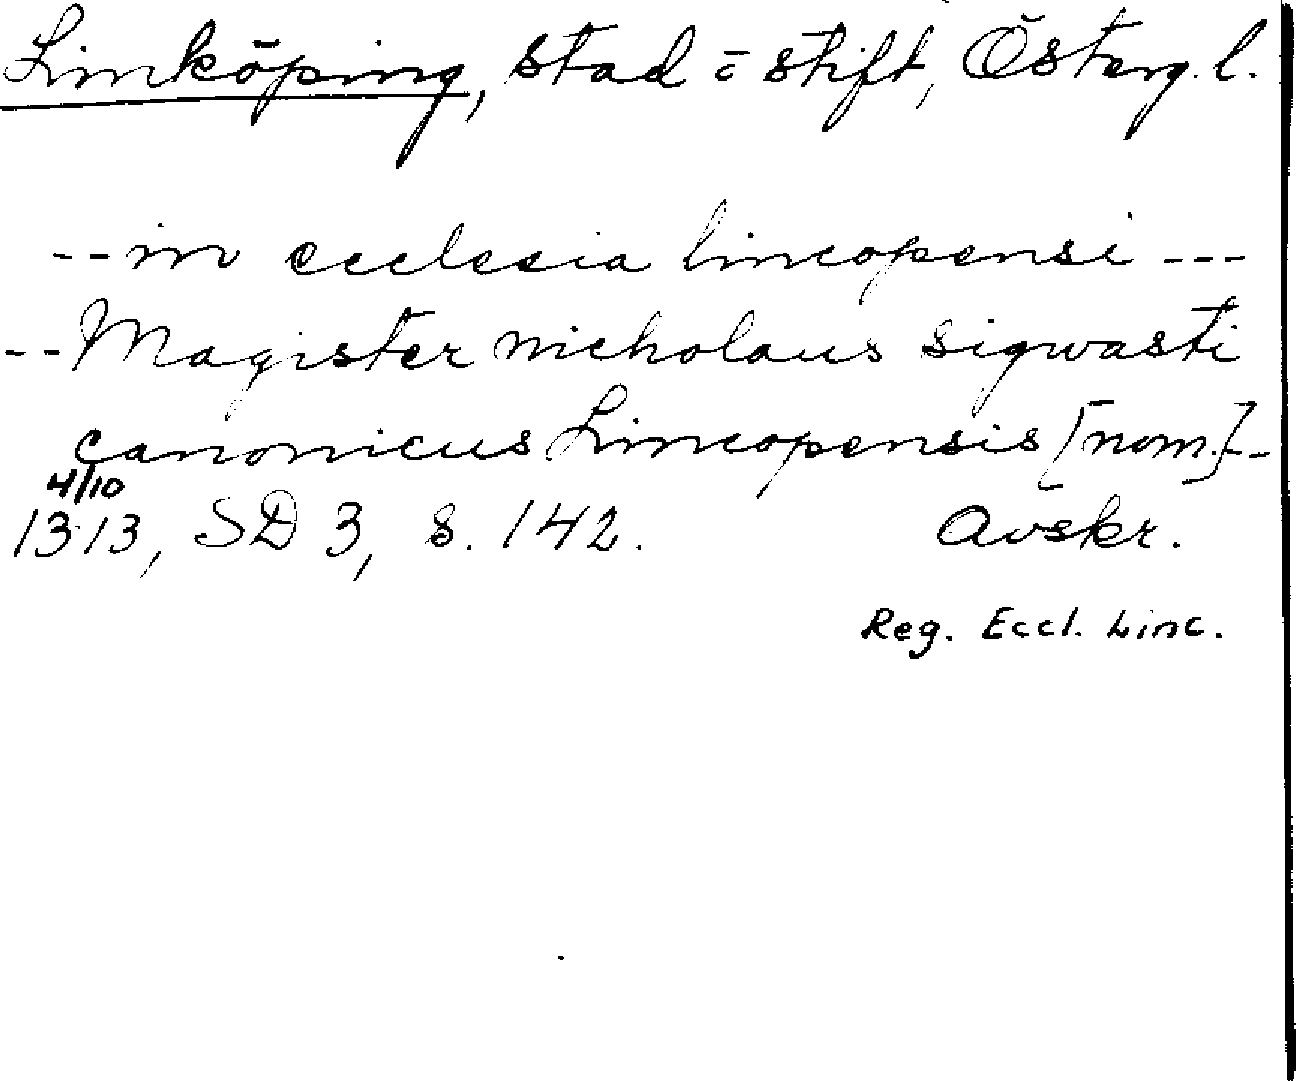 Linköping, stad o stift, Österg. l.
-- in ecclesia lincopensi ---
-- Magister nicholaus sigwasti
canonicus Lincopensis [nom.] -
4/10
1313, SD 3, s. 142. Avskr.
Reg. Eccl. Linc.